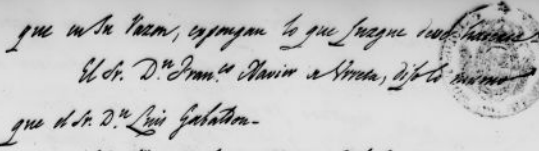 que en su razon, expongan lo que juzgue deve hacerse
El Sr. D.n Fran.co Xavier de Urreta, dijo lo mismo
que el Sr. D.n Luis Gabaldon.